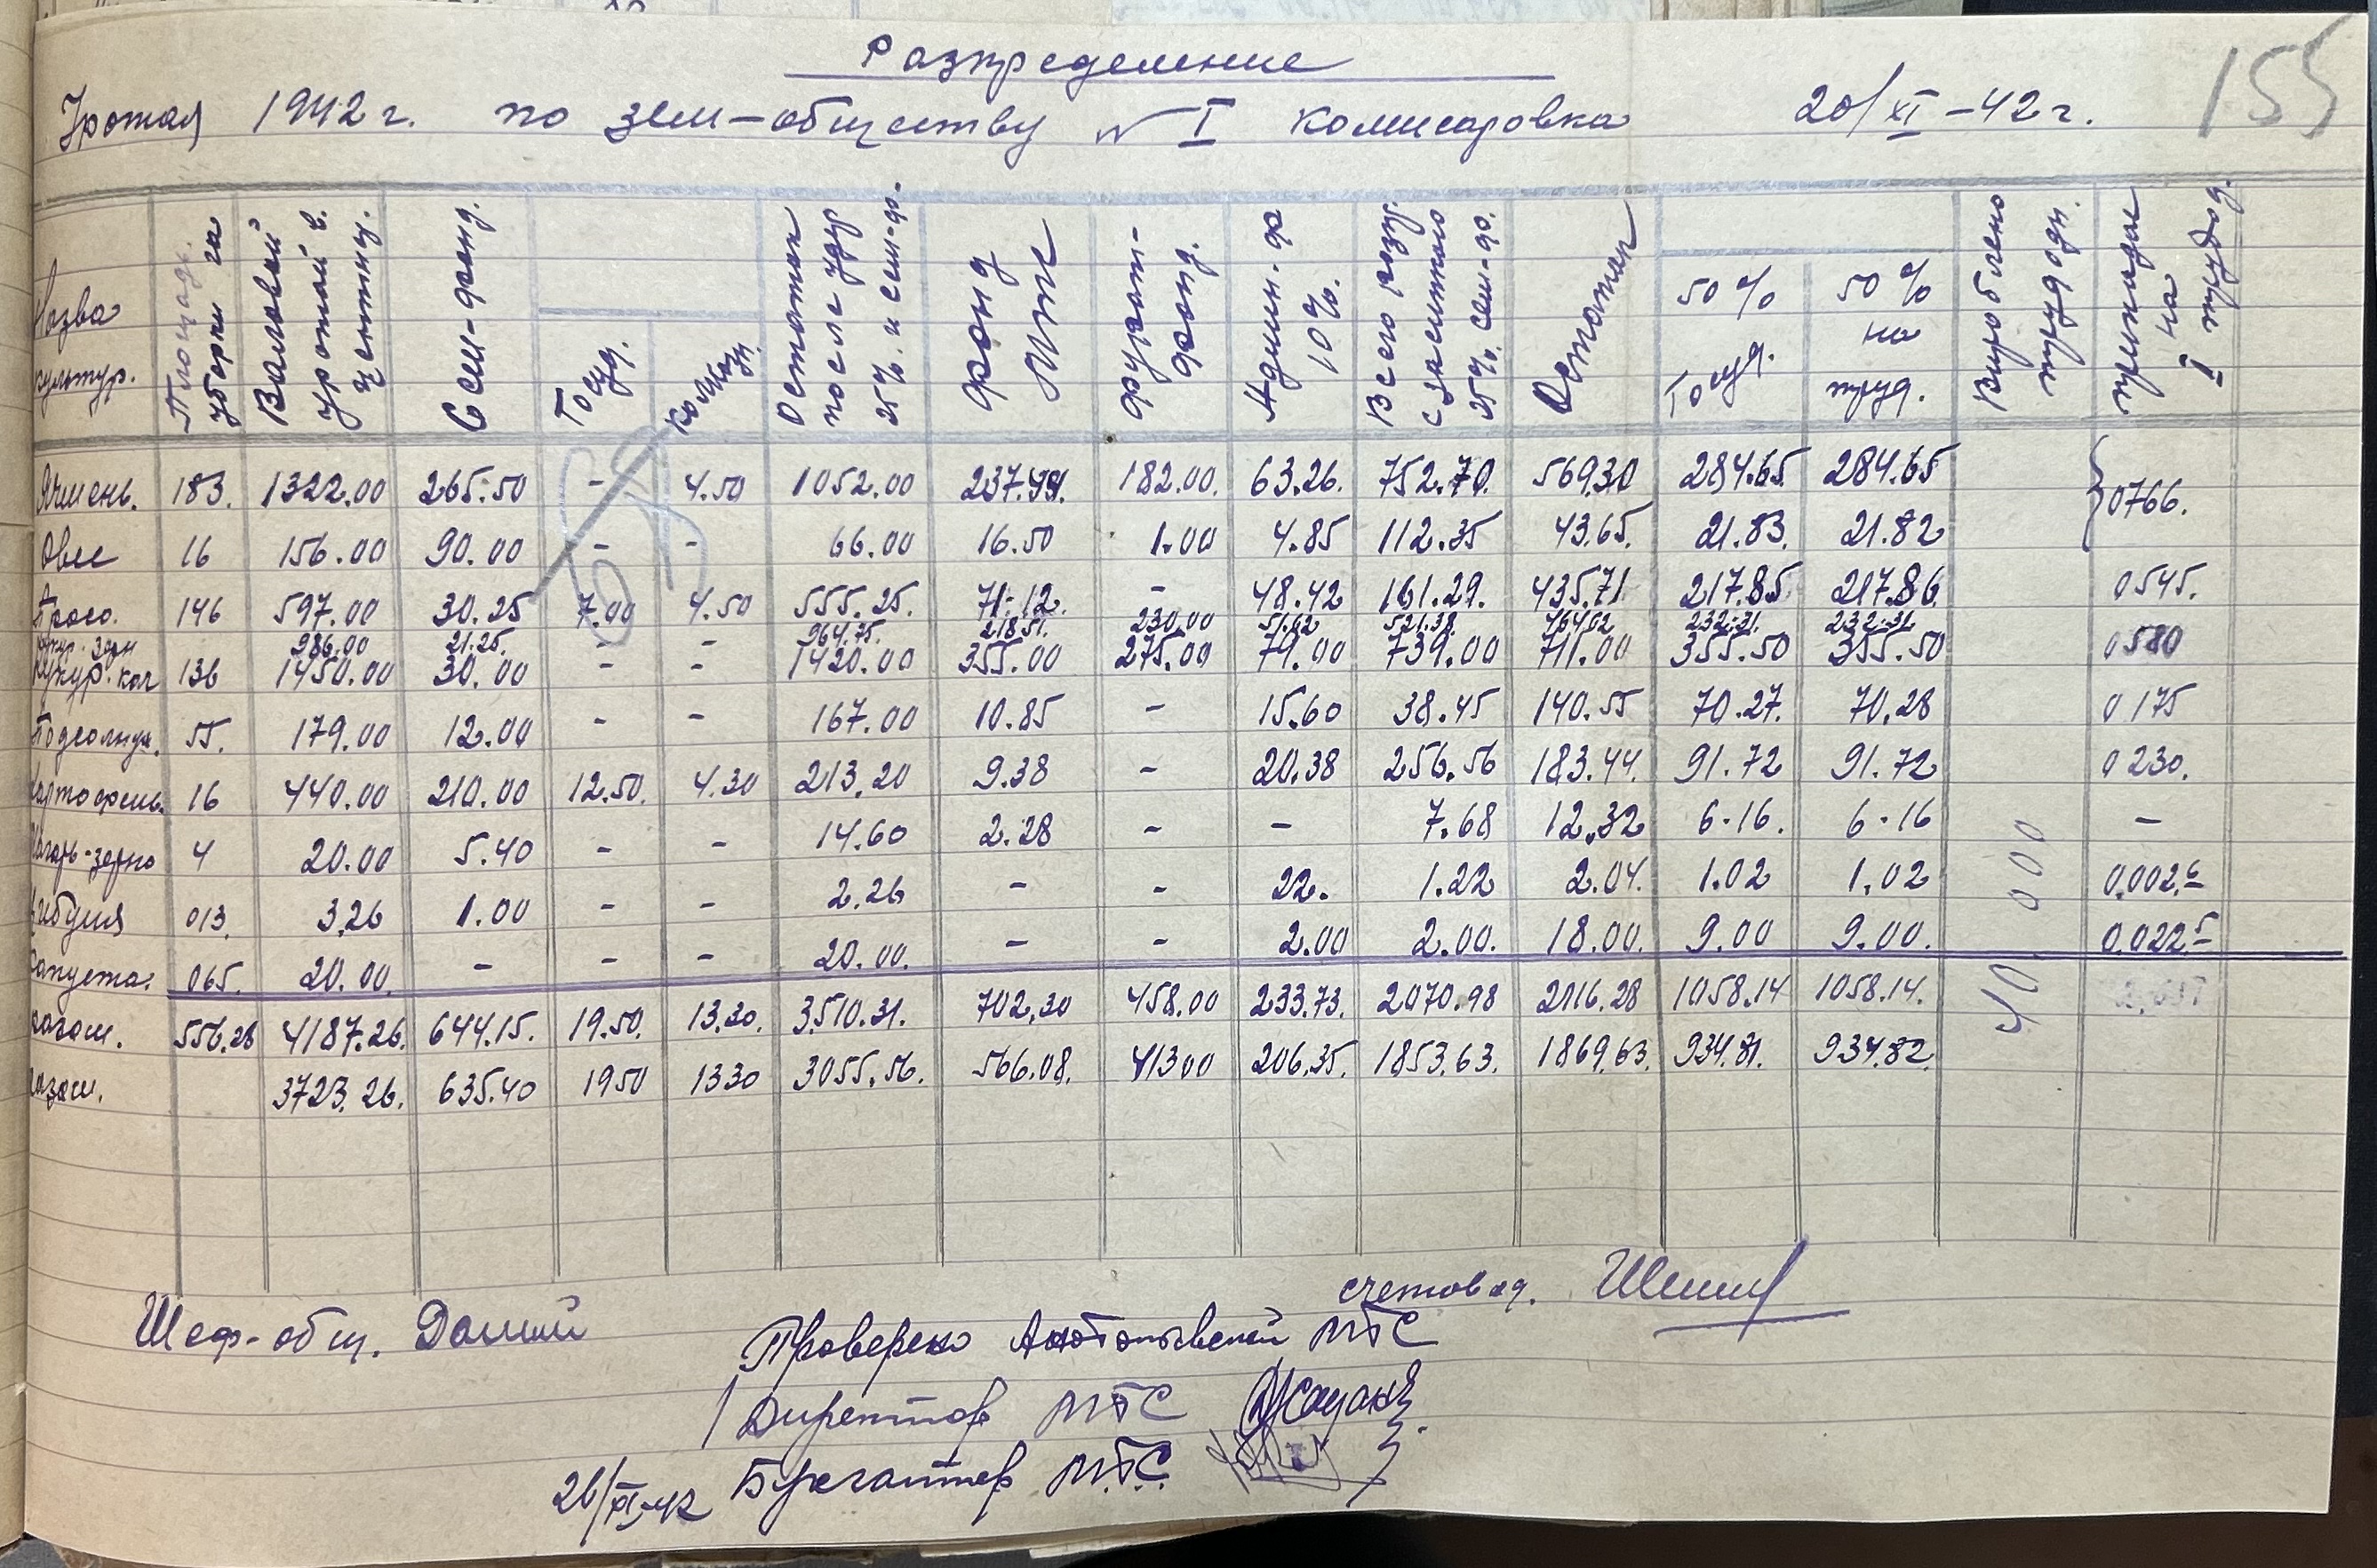 Разпределение
155
Урожая 1942 г. по зем-обществу № I Комисаровка 20/XI-42 г.
Назва культур. | Площадь уборки га | Валовой урожай в. центниц. | Сем-фонд. | Госуд. | Колхозн. | Остаток после удер 25% и сем-фо. | Фонд МТС | Фураж-фонд. | Админ-фо 10%. | Всего разпр. с засыпкою 25% сем-фо. | Остаток | 50% Госуд. | 50% на труд. | Вироблено трудодн. | припадае на I трудод.
Ячмень. 183. 1322.00 265.50 - 4.50 1052.00 237.44. 182.00. 63.26. 752.70. 569.30 284.65. 284.65 } 0766.
Овес 16 156.00 90.00 - - 66.00 16.50 1.00 4.85 112.35 43.65. 21.83. 21.82
Просо. 146 597.00 30.25 7.00 4.50 555.25. 71.12. - 48.42 161.29. 435.71 217.85 217.86. 0545.
Кукур. Зерн 986.00 21.25. - 964.75. 218.51. 230.00 51.62 521.38. 464.62 232.31. 232.31.
Кукур. кач 136 1450.00 30.00 - - 1420.00 355.00 275.00 79.00 739.00 711.00 355.50 355.50 0580
Подсолнух. 55. 179.00 12.00 - - 167.00 10.85 - 15.60 38.45 140.55 70.27. 70.28 0175
Картофель. 16 440.00 210.00 12.50. 4.30 213.20 9.38 - 20.38 256.56 183.44. 91.72 91.72 0230.
зерно 4 20.00 5.40 - - 14.60 2.28 - - 7.68 12.32 6.16. 6.16 -
Цибуля 013. 3.26 1.00 - - 2.26 - - 22. 1.22 2.04. 1.02 1.02 0.002.6
Капуста. 065. 20.00. - - - 20.00. - - 2.00 2.00. 18.00. 9.00 9.00. 0.022 5
40.000
556.28 4187.26. 644.15. 19.50. 13.30. 3510.31. 702.30 458.00 233.73. 2070.98 2116.28 1058.14 1058.14.
3723.26. 635.40 1950 1330 3055.56. 566.08. 41300 206.35. 1853.63. 1869.63. 934.81. 934.82.
счетовод.
Шеф-общ.
Проверено МТС
Директор МТС
26/XI-42 Бухгалтер М.Т.С.